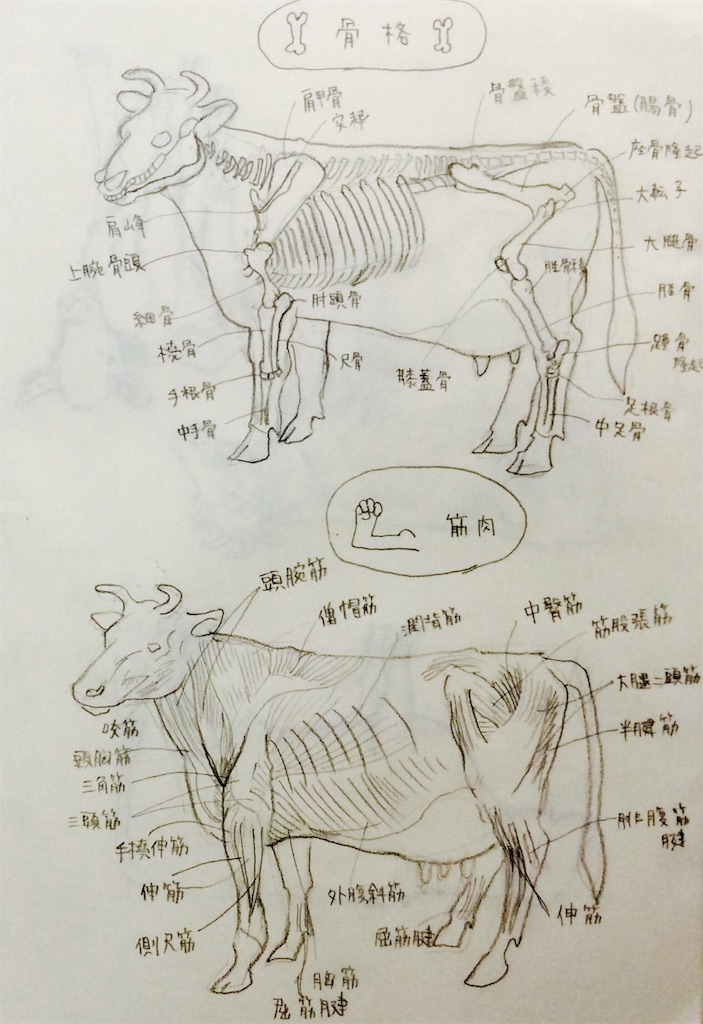 骨格
肩甲骨
突起
骨盤稜
骨盤(腸骨)
座骨隆起
大転子
大腿骨
脛骨稜
脛骨
踵骨
隆起
足根骨
中足骨
肩峰
上腕骨頭
肘頭骨
橈骨
尺骨
手根骨
中手骨
膝蓋骨
筋肉
頭腕筋
僧帽筋
濶背筋
中臀筋
筋股張筋
大腿二頭筋
半腱筋
咬筋
頭胸筋
三角筋
三頭筋
手橈伸筋
伸筋
側尺筋
外腹斜筋
屈筋腱
腓腹筋
腱
伸筋
胸筋
屈筋腱